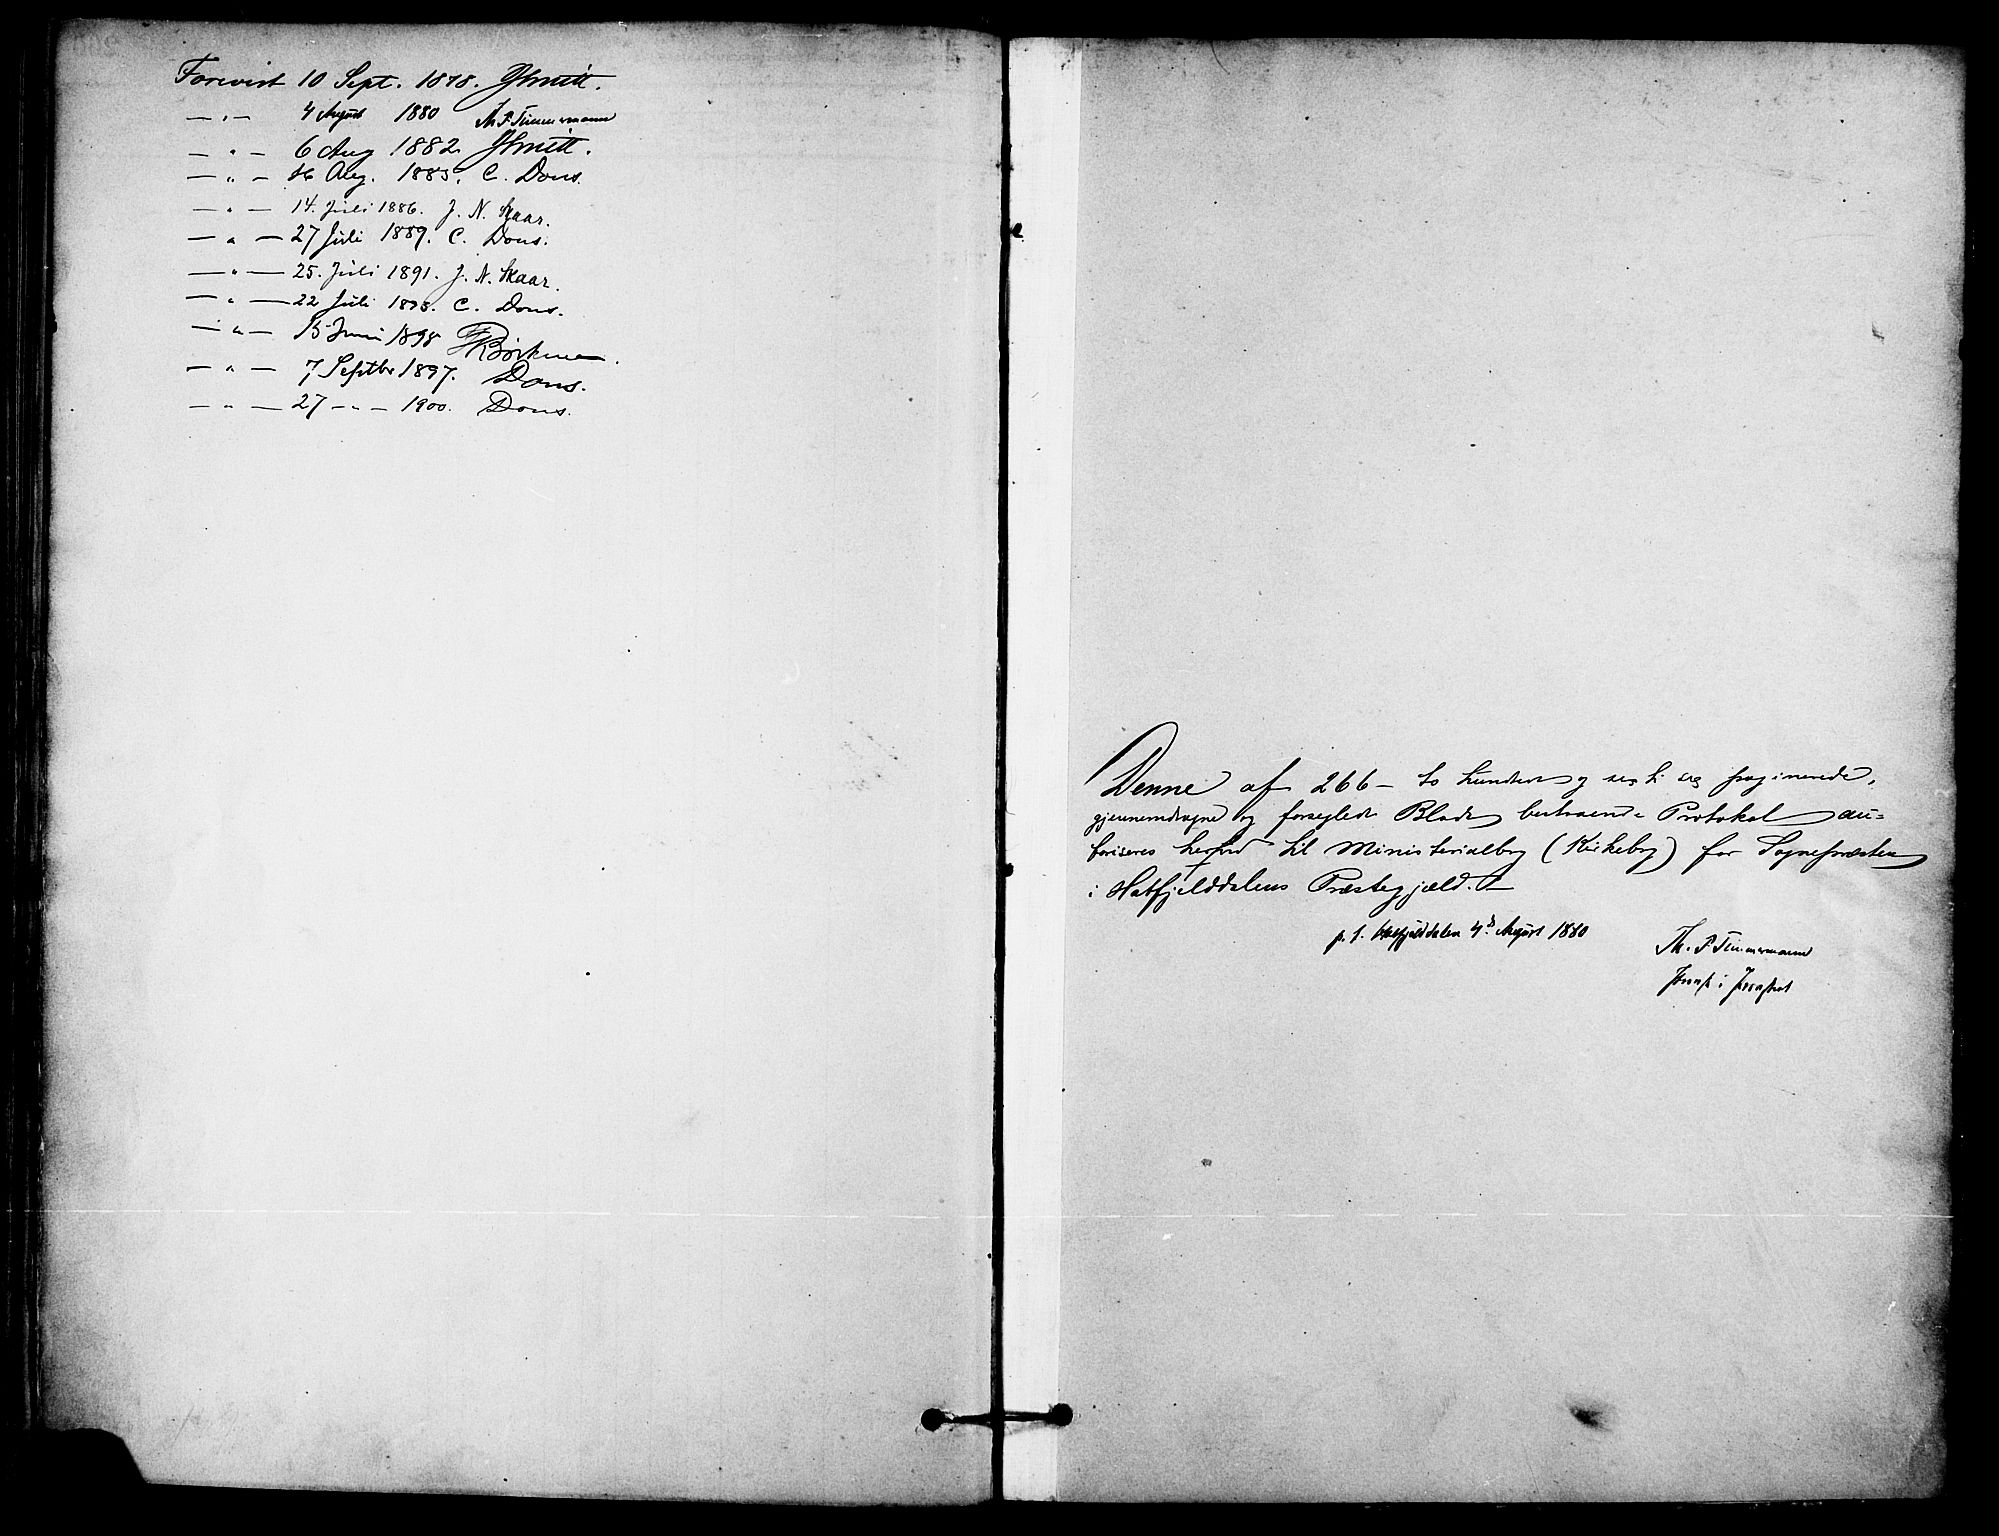 Forevist 10 Sept. 1878. JSmitt.
— " — 4 August 1880 Th. P. Timmermann
— " — 6 Aug 1882. JSmitt.
— " — 16 Aug. 1883. C. Dons.
— " — 14. Juli 1886. J. N. Skaar.
— " — 27 Juli 1889. C. Dons.
— " — 25. Juli 1891. J. N. Skaar.
— " — 22 Juli 1893. C. Dons.
— " — 15 Juni 1898 Böckman.
— " — 7 Septbr 1897. Dons.
— " — 27 — " — 1900. Dons.
Denne af 266 – to hundrede og sex ti sex paginerede,
gjennemdragne og forseglede Blade bestaaende Protokol au=
toriseres herved til Ministerialbog (Kirkebog) for Sognepræsten
i Hatfjelddalens Præstegjæld.
p. t. Hatfjelddalen 4de August 1880
Th. P. Timmermann
Provst i